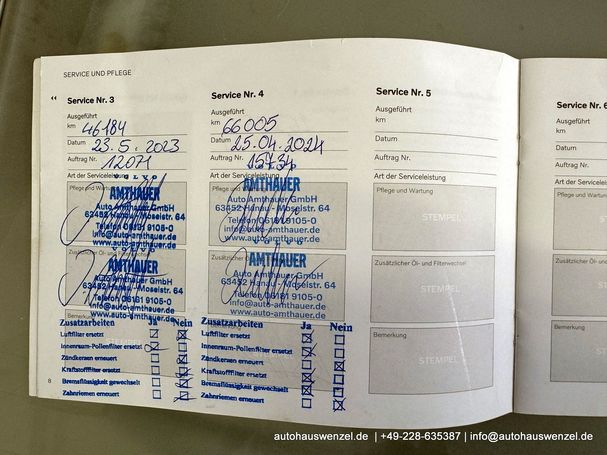 SERVICE UND PFLEGE
Service Nr. 3
Ausgeführt
km 46184
Datum 23.5.2023
Auftrag Nr. 12071
Art der Serviceleistung
Pflege und Wartung
VOLVO
AMTHAUER
Auto Amthauer GmbH
63452 Hanau - Moselstr. 64
Telefon 06181 9105-0
info@auto-amthauer.de
www.auto-amthauer.de
Zusätzlicher Öl- und
VOLVO
AMTHAUER
Auto Amthauer GmbH
63452 Hanau - Moselstr. 64
Telefon 06181 9105-0
info@auto-amthauer.de
www.auto-amthauer.de
Bemerkung
Zusatzarbeiten Ja Nein
Luftfilter ersetzt
Innenraum-Pollenfilter ersetzt
Zündkerzen erneuert
Kraftstofffilter ersetzt
Bremsflüssigkeit gewechselt
Zahnriemen erneuert
8
Service Nr. 4
Ausgeführt
km 66005
Datum 25.04.2024
Auftrag Nr. 15734
Art der Serviceleistung
AMTHAUER
Auto Amthauer GmbH
63452 Hanau - Moselstr. 64
Telefon 06181 9105-0
info@auto-amthauer.de
www.auto-amthauer.de
AMTHAUER
Auto Amthauer GmbH
63452 Hanau - Moselstr. 64
Telefon 06181 9105-0
info@auto-amthauer.de
www.auto-amthauer.de
Zusatzarbeiten Ja Nein
Luftfilter ersetzt
Innenraum-Pollenfilter ersetzt
Zündkerzen erneuert
Kraftstofffilter ersetzt
Bremsflüssigkeit gewechselt
Zahnriemen erneuert
Service Nr. 5
Ausgeführt
km
Datum
Auftrag Nr.
Art der Serviceleistung
Pflege und Wartung
STEMPEL
Zusätzlicher Öl- und Filterwechsel
STEMPEL
Bemerkung
STEMPEL
Service Nr. 6
Ausgeführt
km
Datum
Auftrag Nr.
Art der Serviceleistung
Pflege und Wartung
Zusätzlicher Öl-
Bemerkung
autohauswenzel.de | +49-228-635387 | info@autohauswenzel.de